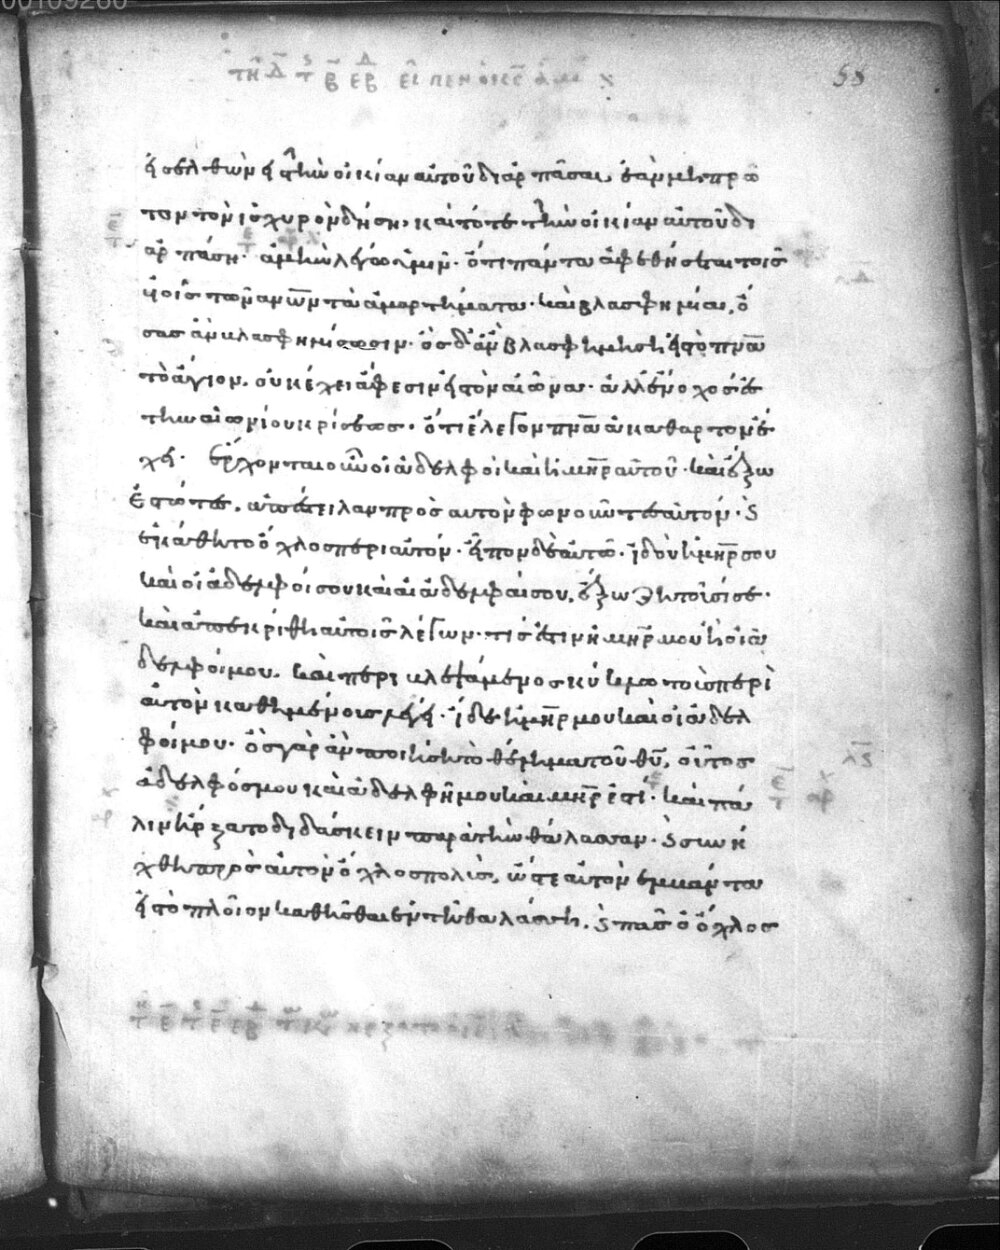 εἰσελθὼν εἰς τὴν οἰκίαν αὐτοῦ διαρπᾶσαι, ἐὰν μὴ πρῶ
τον τὸν ἰσχυρὸν δήσῃ, καὶ τότε τὴν οἰκίαν αὐτοῦ δι
αρπάσῃ· ἀμὴν λέγω ὑμῖν· ὅτι πάντα ἀφεθήσεται τοῖς
υἱοῖς τῶν ἀνων τὰ ἁμαρτήματα· καὶ βλασφημίαι, ὅ
σας ἂν βλασφημήσωσιν· ὃς δ' ἂν βλασφημήσῃ εἰς τὸ πνα
τὸ ἅγιον, οὐκ ἔχει ἄφεσιν εἰς τὸν αἰῶνα· ἀλλ' ἔνοχός ἐσ
την αἰωνίου κρίσεως· ὅτι ἔλεγον πνα ἀκάθαρτον ἔ
χει· ἔρχονται οὖν οἱ ἀδελφοὶ καὶ ἡ μηρ αὐτοῦ· καὶ ἔξω
ἑστῶτες, ἀπέστειλαν πρὸς αὐτὸν φωνοῦντες αὐτόν· ϗ
ἐκάθητο ὄχλος περὶ αὐτόν· εἶπον δὲ αὐτῶ· ἰδοὺ ἡ μηρ σου
καὶ οἱ ἀδελφοί σου καὶ αἱ ἀδελφαί σου, ἔξω ζητοῦσί σε·
καὶ ἀπεκρίθη αὐτοῖς λέγων· τίς ἐστιν ἡ μηρ μου ἢ οἱ ἀ
δελφοί μου, καὶ περιβλεψάμενος κύκλω τοὺς περὶ
αὐτὸν καθημένους λέγει· ἴδε ἡ μηρ μου καὶ οἱ ἀδελ
φοί μου· ὃς γὰρ ἂν ποιήσῃ τὸ θέλημα τοῦ θυ, οὗτος
ἀδελφός μου καὶ ἀδελφή μου καὶ μηρ ἐστί· καὶ πά
λιν ἤρξατο διδάσκειν παρὰ τὴν θάλασσαν· ϗ συνή
χθη πρὸς αὐτὸν ὄχλος πολύς, ὥστε αὐτὸν ἐμβάντα
εἰς τὸ πλοῖον καθῆσθαι ἐν τῇ θαλάσσῃ, ϗ πᾶς ὁ ὄχλος